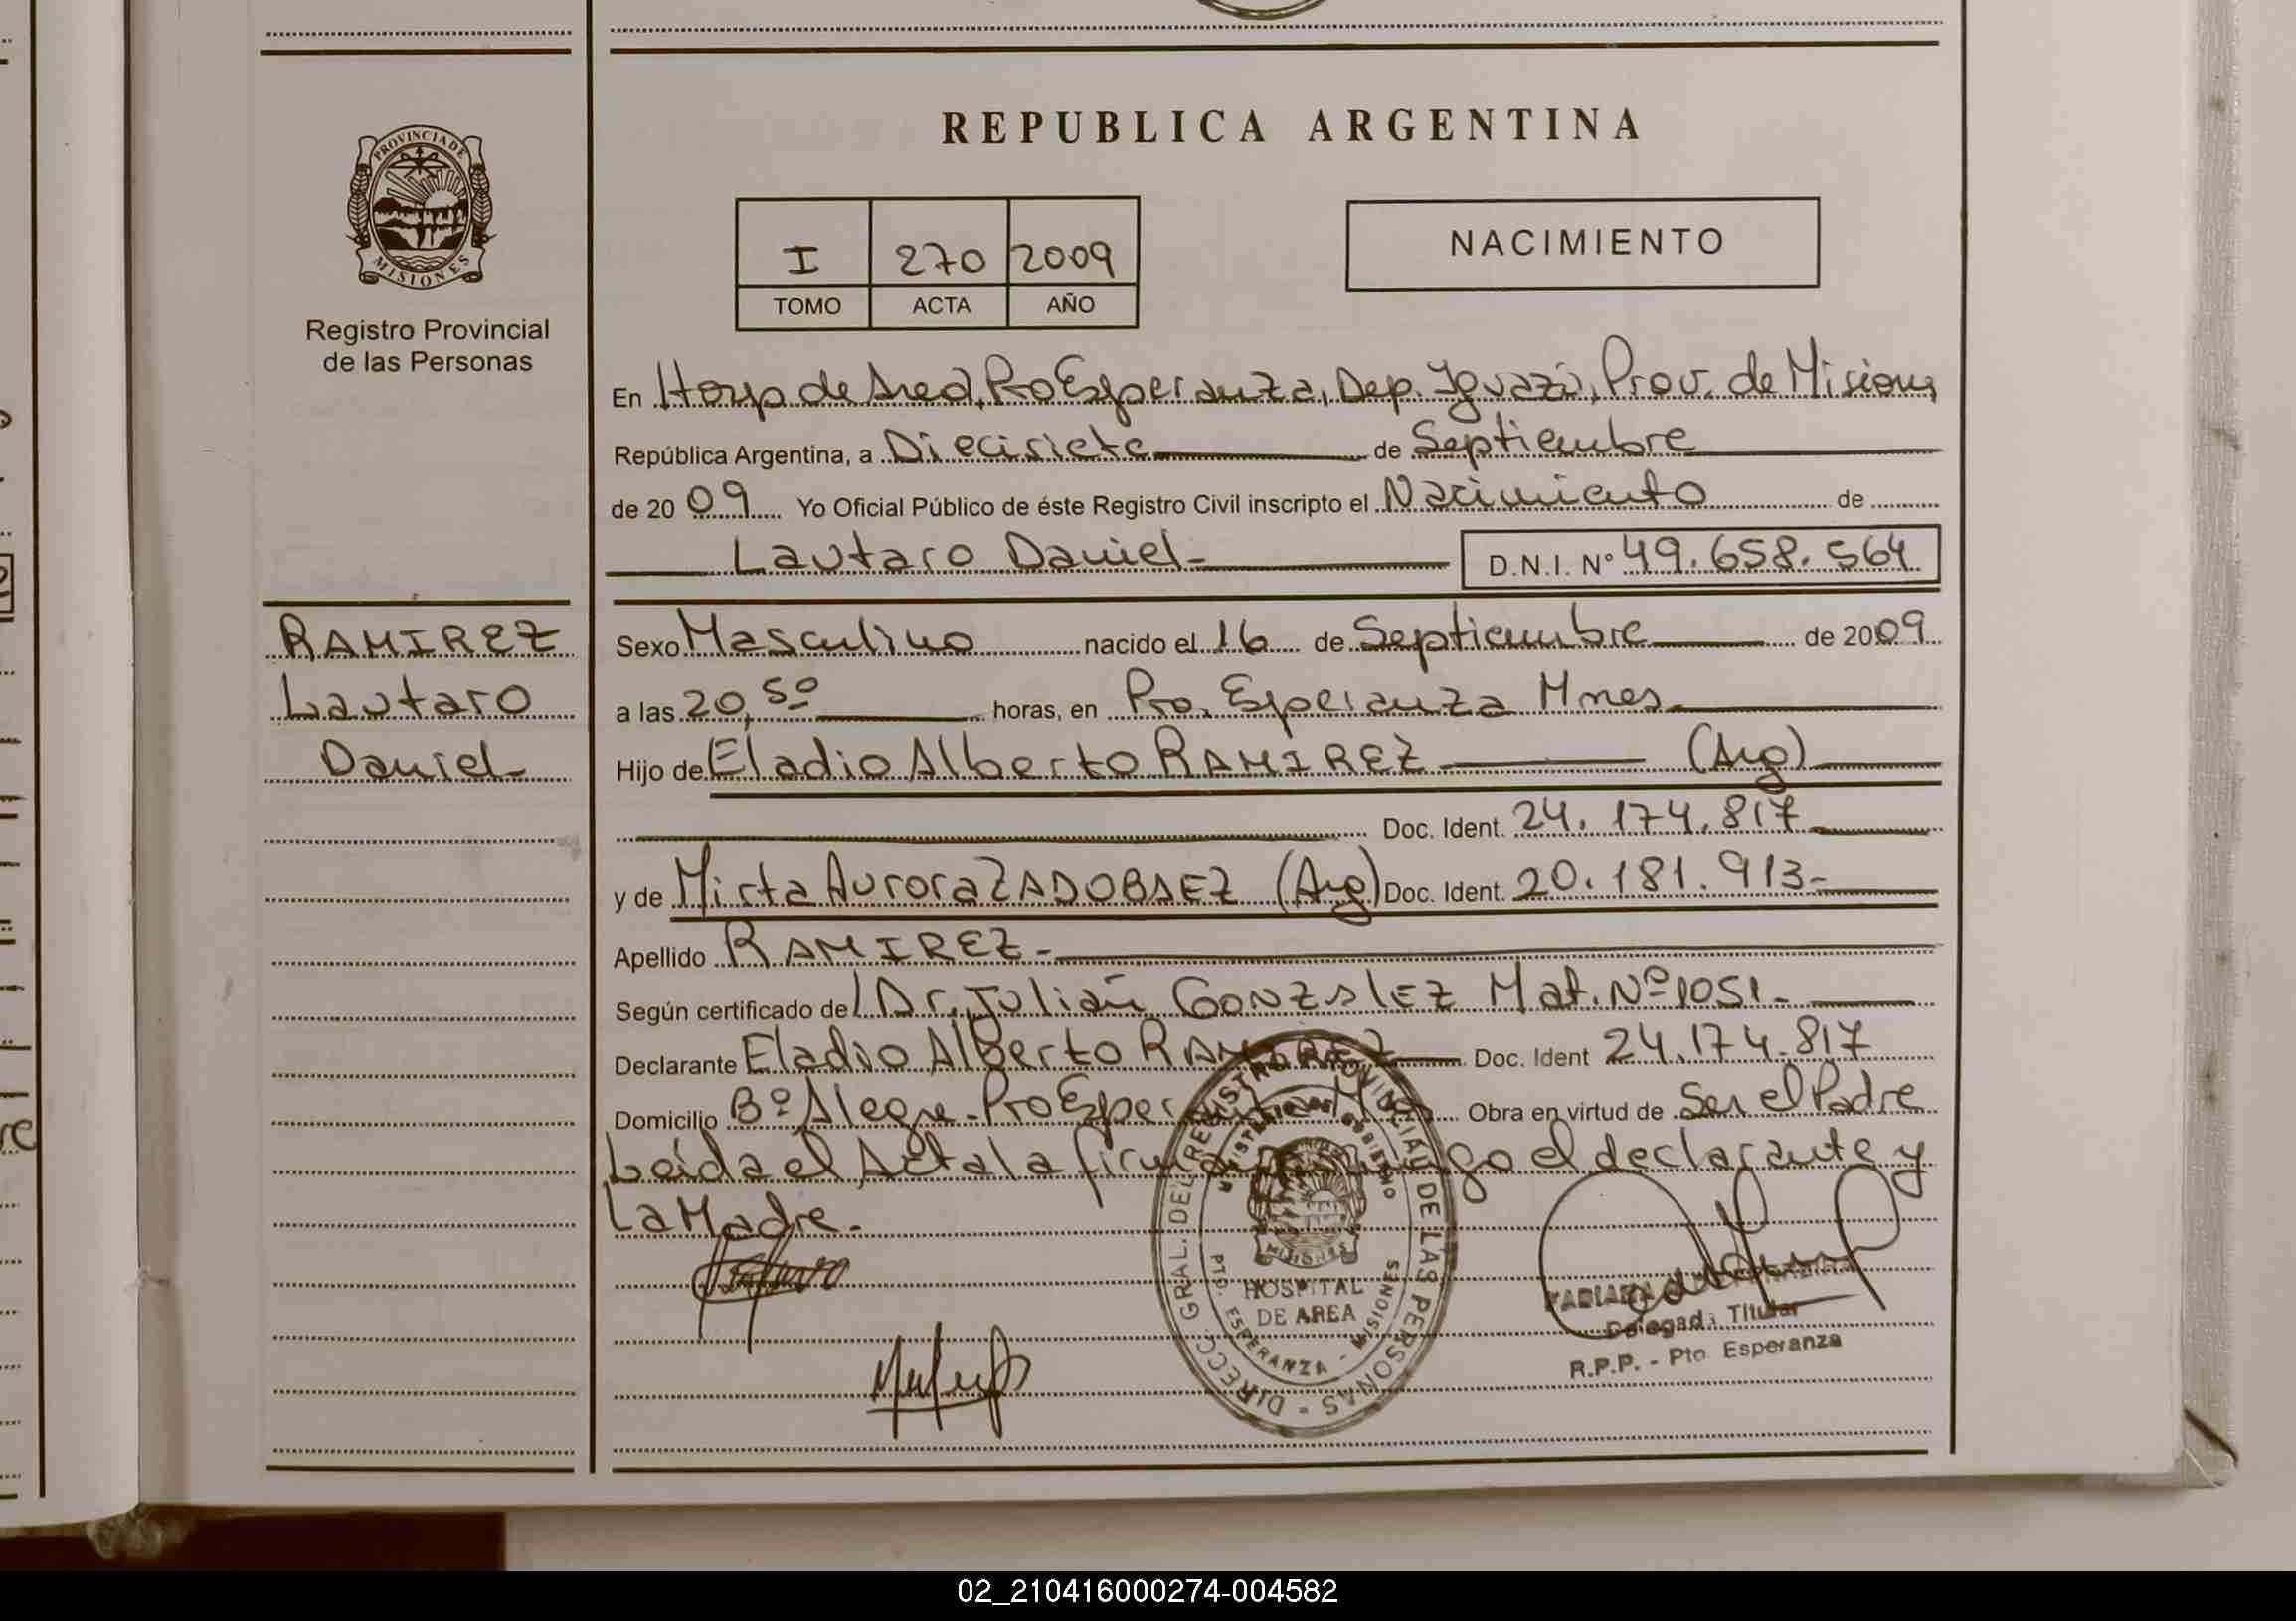 REPUBLICA ARGENTINA
PROVINCIA DE
MISIONES
Registro Provincial
de las Personas
I 270 2009
TOMO ACTA AÑO
NACIMIENTO
En Hosp de Area, Pto Esperanza, Dep. Iguazú, Prov. de Misiones
República Argentina, a Diecisiete de Septiembre
de 2009 Yo Oficial Público de éste Registro Civil inscripto el Nacimiento de
Lautaro Daniel-
D.N.I. Nº 49.658.564
RAMIREZ
Lautaro
Daniel-
Sexo Masculino nacido el 16 de Septiembre de 2009
a las 20,50 horas, en Pto. Esperanza Mnes-
Hijo de Eladio Alberto RAMIREZ (Arg)
Doc. Ident. 24.174.817
y de Mirta Aurora ZADOBAEZ (Arg) Doc. Ident. 20.181.913-
Apellido RAMIREZ-
Según certificado de Dr. Julian GONZALEZ Mat. Nº 1051-
Declarante Eladio Alberto RAMIREZ Doc. Ident 24.174.817
Domicilio Bº Alegre-Pto Esperanza Obra en virtud de Ser el Padre
Leída el Acta la firman el declarante y
La Madre.
DIRECC. GRAL. DEL REGISTRO PROVINCIAL DE LAS PERSONAS
MINISTERIO DE GOBIERNO
MISIONES
HOSPITAL
DE AREA
PTO. ESPERANZA - MISIONES
Delegada Titular
R.P.P. - Pto Esperanza
02_210416000274-004582